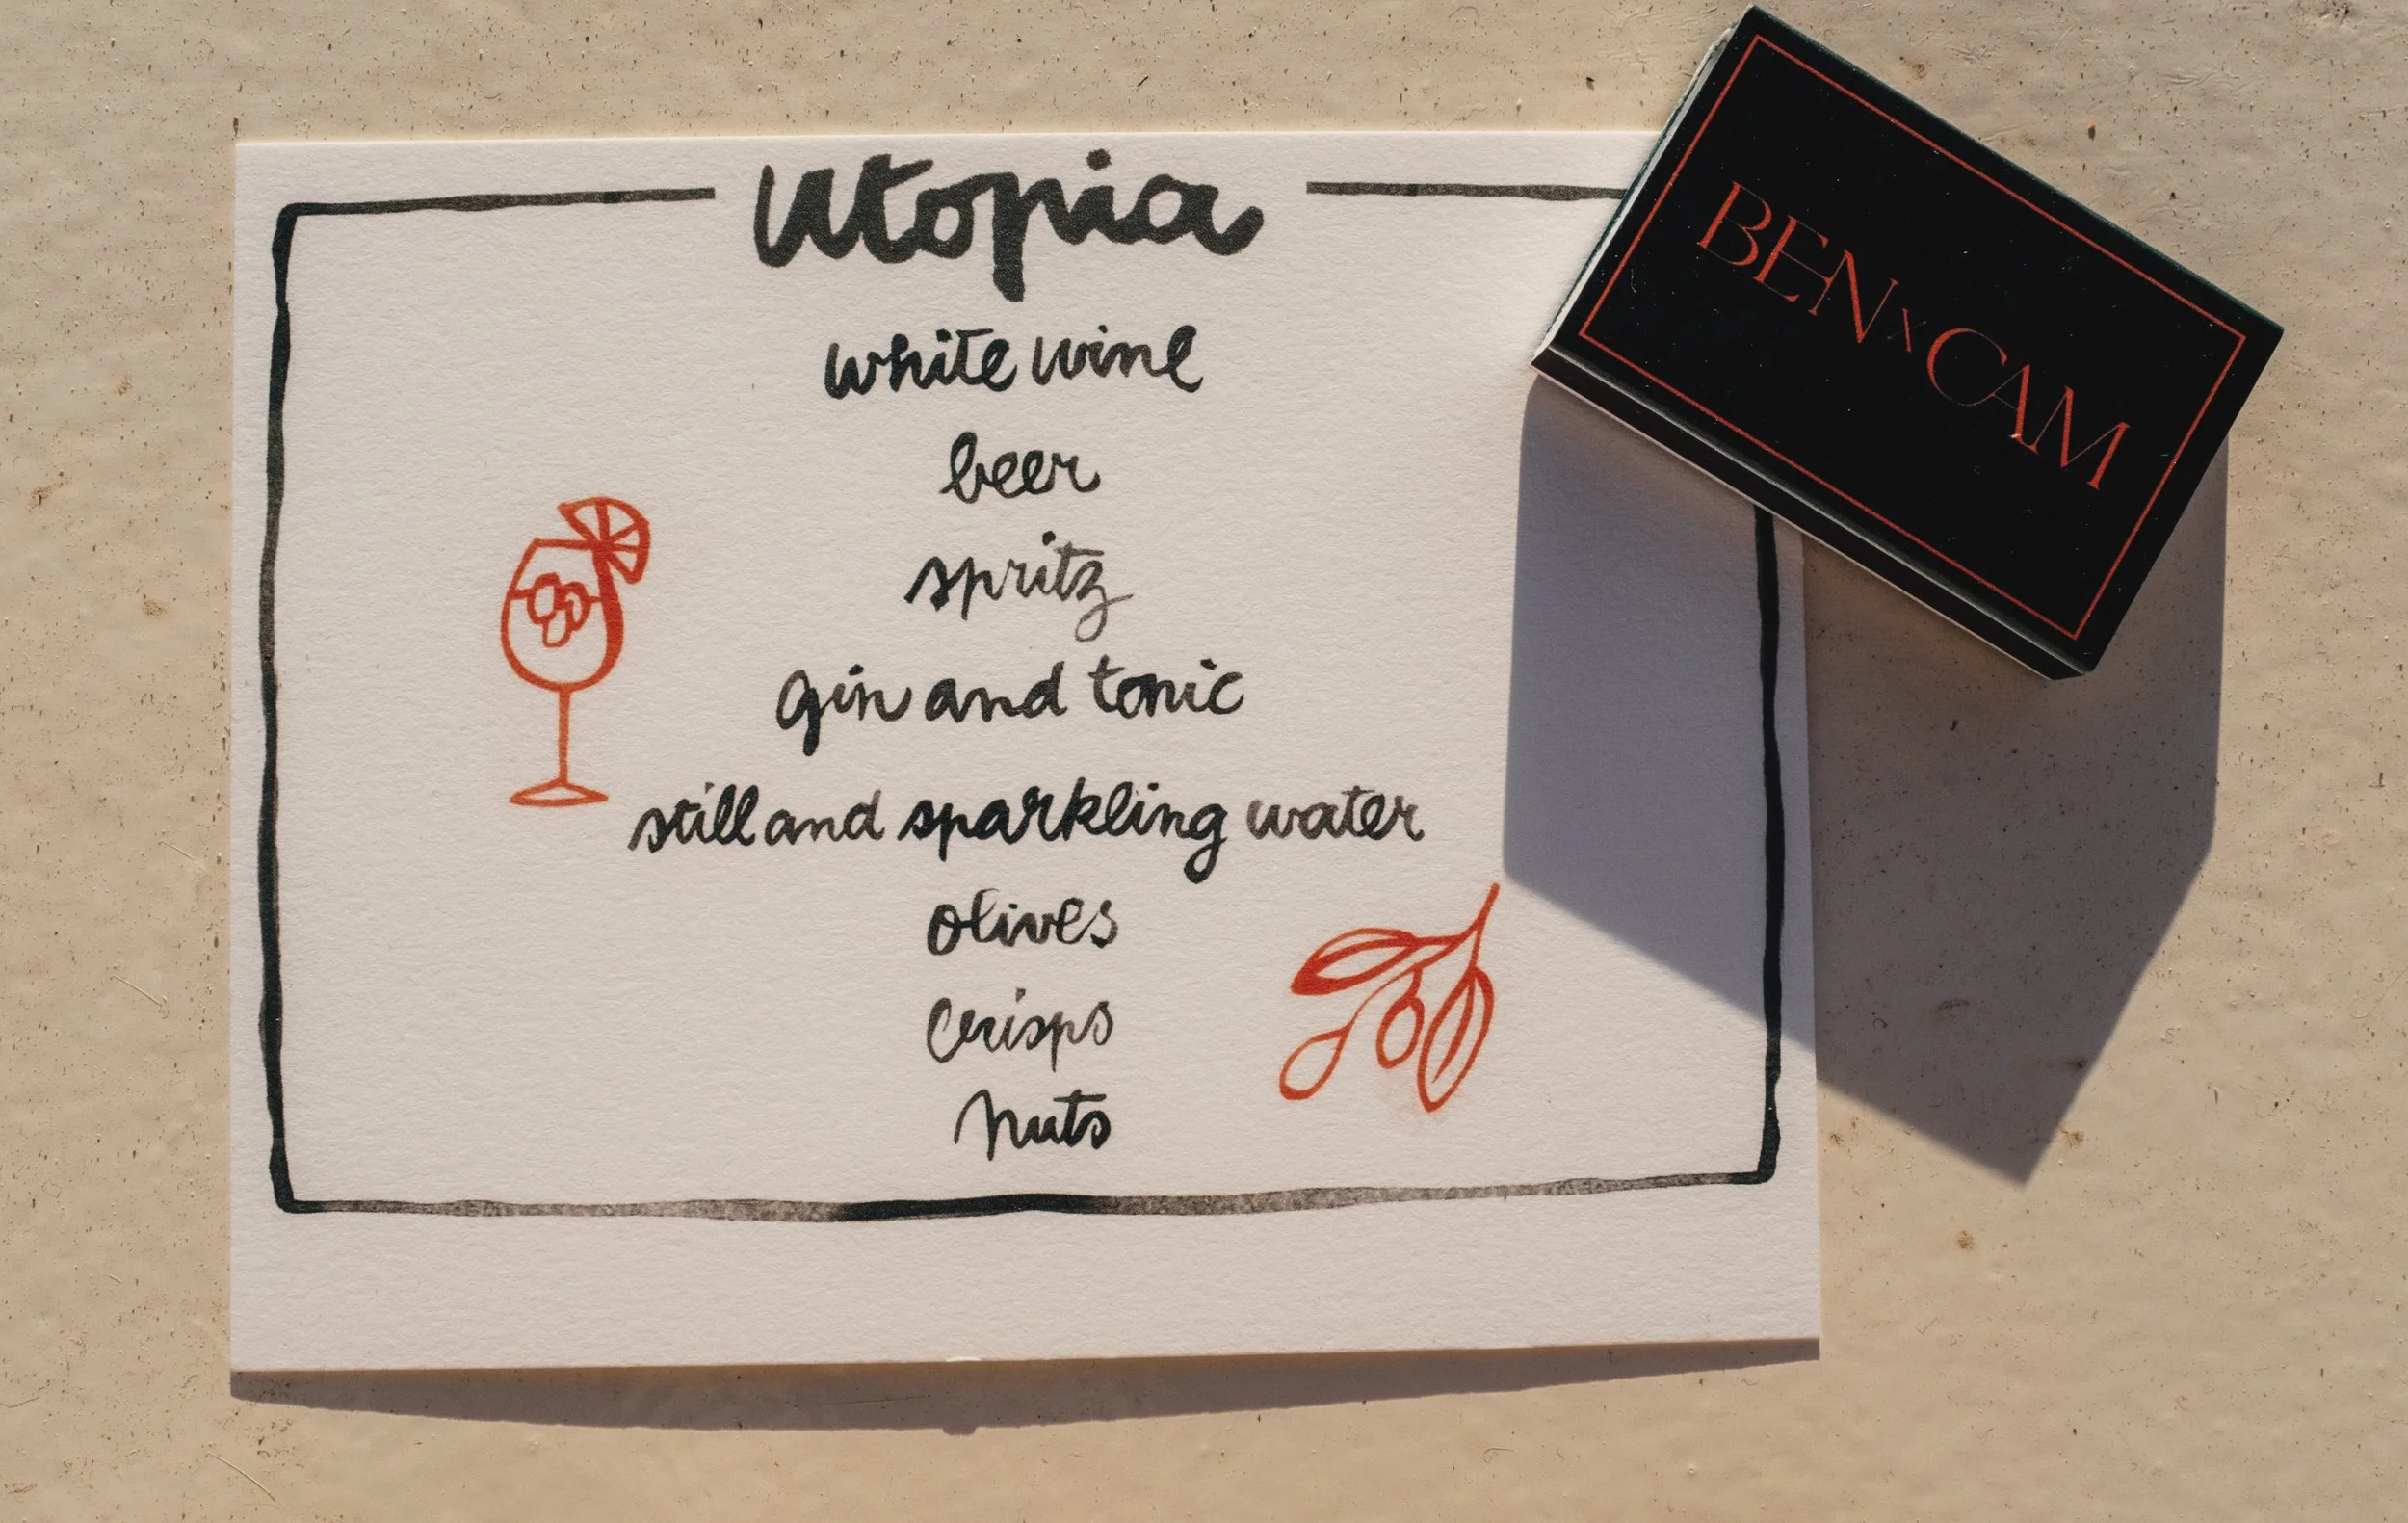 utopia
white wine
beer
spritz
gin and tonic
still and sparkling water
olives
crisps
nuts
BEN x CAM